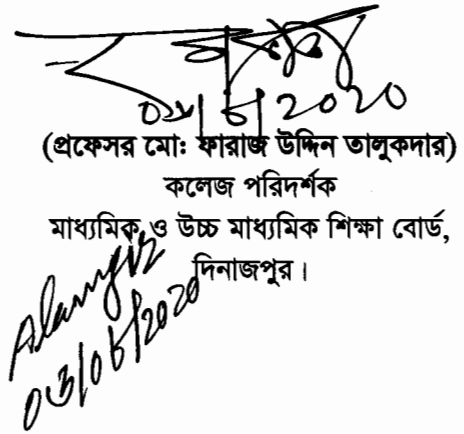 (প্রফেসর মো: ফারাজ উদ্দিন তালুকদার)
কলেজ পরিদর্শক
মাধ্যমিক ও উচ্চ মাধ্যমিক শিক্ষা বোর্ড,
দিনাজপুর।
Alamgir
03/06/2020